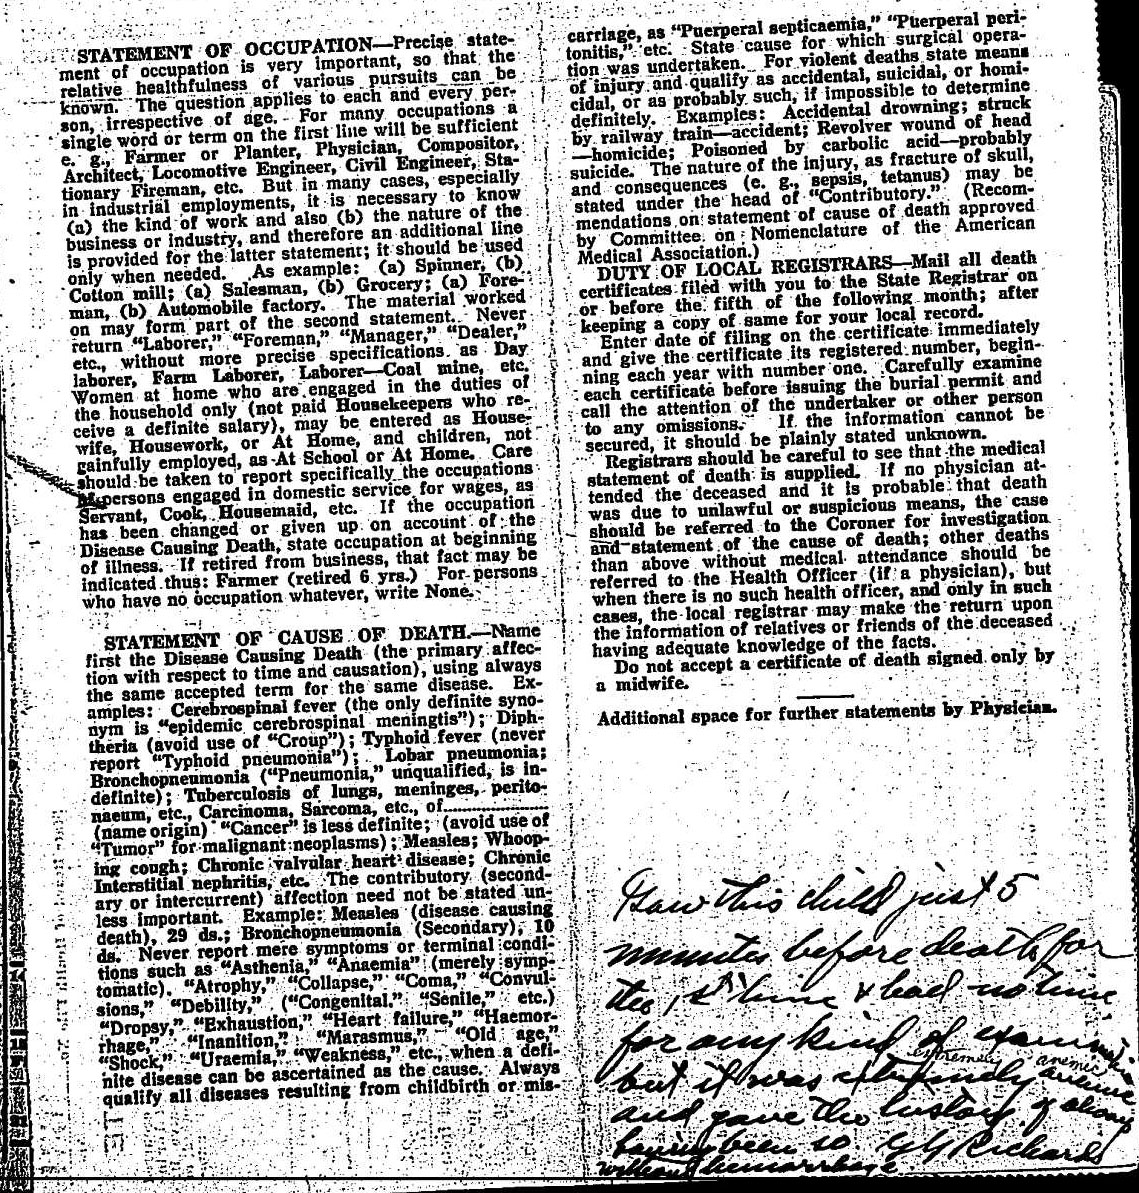 STATEMENT OF OCCUPATION—Precise state-
ment of occupation is very important, so that the
relative healthfulness of various pursuits can be
known. The question applies to each and every per-
son, irrespective of age. For many occupations a
single word or term on the first line will be sufficient
e. g., Farmer or Planter, Physician, Compositor,
Architect, Locomotive Engineer, Civil Engineer, Sta-
tionary Fireman, etc. But in many cases, especially
in industrial employments, it is necessary to know
(a) the kind of work and also (b) the nature of the
business or industry, and therefore an additional line
is provided for the latter statement; it should be used
only when needed. As example: (a) Spinner, (b)
Cotton mill; (a) Salesman, (b) Grocery; (a) Fore-
man, (b) Automobile factory. The material worked
on may form part of the second statement. Never
return "Laborer," "Foreman," "Manager," "Dealer,"
etc., without more precise specifications as Day
laborer, Farm Laborer, Laborer—Coal mine, etc.
Women at home who are engaged in the duties of
the household only (not paid Housekeepers who re-
ceive a definite salary), may be entered as House-
wife, Housework, or At Home, and children, not
gainfully employed, as At School or At Home. Care
should be taken to report specifically the occupations
persons engaged in domestic service for wages, as
Servant, Cook, Housemaid, etc. If the occupation
has been changed or given up on account of the
Disease Causing Death, state occupation at beginning
of illness. If retired from business, that fact may be
indicated thus: Farmer (retired 6 yrs.) For persons
who have no occupation whatever, write None.
STATEMENT OF CAUSE OF DEATH.—Name
first the Disease Causing Death (the primary affec-
tion with respect to time and causation), using always
the same accepted term for the same disease. Ex-
amples: Cerebrospinal fever (the only definite syno-
nym is "epidemic cerebrospinal meningtis"); Diph-
theria (avoid use of "Croup"); Typhoid fever (never
report "Typhoid pneumonia"); Lobar pneumonia;
Bronchopneumonia ("Pneumonia," unqualified, is in-
definite); Tuberculosis of lungs, meninges, perito-
naeum, etc., Carcinoma, Sarcoma, etc., of....................
(name origin) "Cancer" is less definite; (avoid use of
"Tumor" for malignant neoplasms); Measles; Whoop-
ing cough; Chronic valvular heart disease; Chronic
Interstitial nephritis, etc. The contributory (second-
ary or intercurrent) affection need not be stated un-
less important. Example: Measles (disease causing
death), 29 ds.; Bronchopneumonia (Secondary), 10
ds. Never report mere symptoms or terminal condi-
tions such as "Asthenia," "Anaemia" (merely symp-
tomatic), "Atrophy," "Collapse," "Coma," "Convul-
sions," "Debility," ("Congenital," "Senile," etc.)
"Dropsy," "Exhaustion," "Heart failure," "Haemor-
rhage," "Inanition," "Marasmus," "Old age,"
"Shock," "Uraemia," "Weakness," etc., when a defi-
nite disease can be ascertained as the cause. Always
qualify all diseases resulting from childbirth or mis-
carriage, as "Puerperal septicaemia," "Puerperal peri-
tonitis," etc. State cause for which surgical opera-
tion was undertaken. For violent deaths state means
of injury and qualify as accidental, suicidal, or homi-
cidal, or as probably such, if impossible to determine
definitely. Examples: Accidental drowning; struck
by railway train—accident; Revolver wound of head
—homicide; Poisoned by carbolic acid—probably
suicide. The nature of the injury, as fracture of skull,
and consequences (e. g., sepsis, tetanus) may be
stated under the head of "Contributory." (Recom-
mendations on statement of cause of death approved
by Committee on Nomenclature of the American
Medical Association.)
DUTY OF LOCAL REGISTRARS—Mail all death
certificates filed with you to the State Registrar on
or before the fifth of the following month; after
keeping a copy of same for your local record.
Enter date of filing on the certificate immediately
and give the certificate its registered number, begin-
ning each year with number one. Carefully examine
each certificate before issuing the burial permit and
call the attention of the undertaker or other person
to any omissions. If the information cannot be
secured, it should be plainly stated unknown.
Registrars should be careful to see that the medical
statement of death is supplied. If no physician at-
tended the deceased and it is probable that death
was due to unlawful or suspicious means, the case
should be referred to the Coroner for investigation
and statement of the cause of death; other deaths
than above without medical attendance should be
referred to the Health Officer (if a physician), but
when there is no such health officer, and only in such
cases, the local registrar may make the return upon
the information of relatives or friends of the deceased
having adequate knowledge of the facts.
Do not accept a certificate of death signed only by
a midwife.
Additional space for further statements by Physician.
Saw this child just 5
minutes before death for
the 1st time & had no time
for any kind of
extremely anemic
but it was extremely
and gave the history of always
having been so G Y Richards
without hemorrhage.